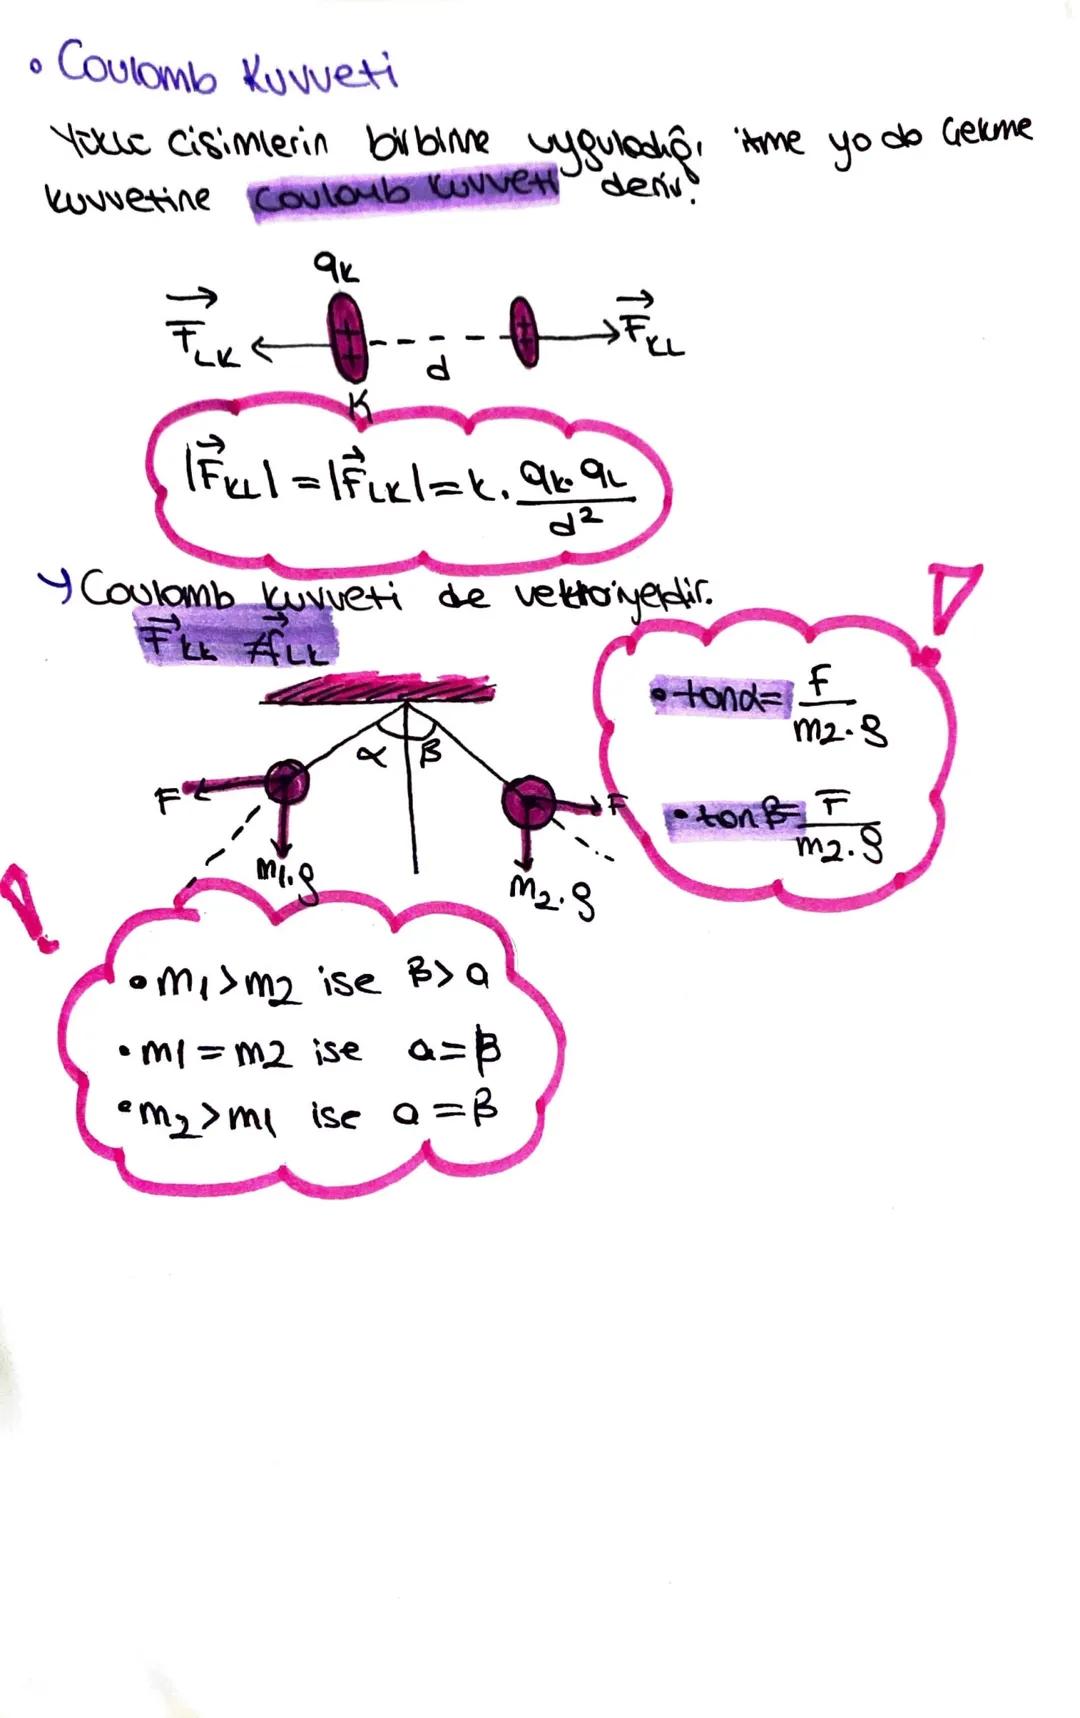 • Coulomb Kuvveti
Yüklü cisimlerin birbirine uyguladığı itme ya da Gekme
kuvvetine Couloub kuvveti denir.
qK
F⃗LK d F⃗KL
K
|F⃗KL| = |F⃗LK| = k. qk.qL / d²
Coulomb kuvveti de
• tanα= F / m2.g
α β
F F
• tanβ= F / m2.g
m1.g m2.g
• m1>m2 ise β>a
• m1=m2 ise a=β
• m2>m1 ise a=β